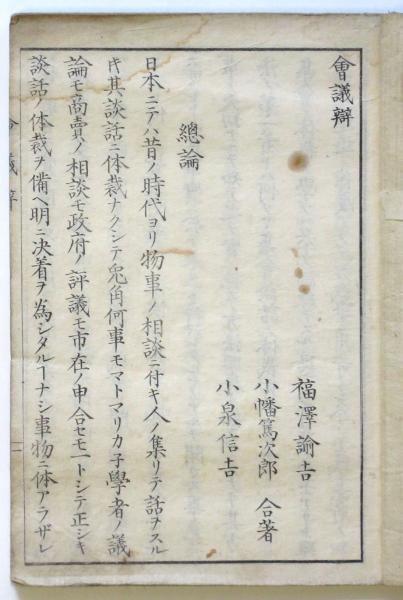 會議辯
福澤諭吉
小幡篤次郎 合著
小泉信吉
總論
日本ニテハ昔ノ時代ヨリ物事ノ相談ニ付キ人ノ集リテ話ヲスル
片其談話ニ体裁ナクシテ兎角何事モマトマリカ子學者ノ議
論モ商賣ノ相談モ政府ノ評議モ市在ノ申合セモ一トシテ正シキ
談話ノ体裁ヲ備ヘ明ニ決着ヲ為シタルヿナシ事物ニ体アラザレ